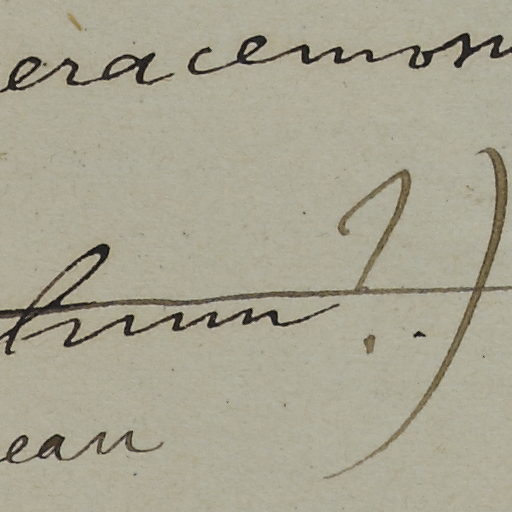 eracemosu
trum ?.)
ean